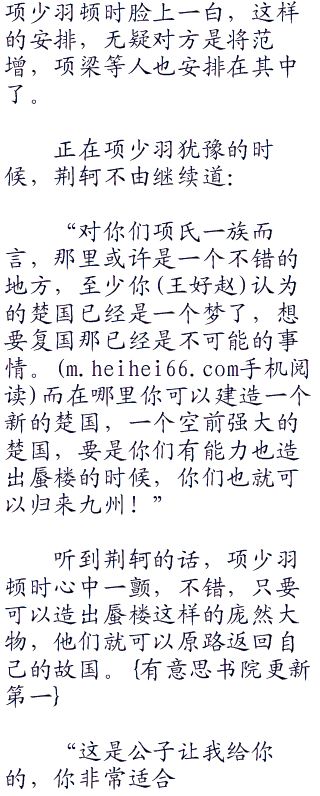 项少羽顿时脸上一白，这样
的安排，无疑对方是将范
增，项梁等人也安排在其中
了。
正在项少羽犹豫的时
候，荆轲不由继续道：
“对你们项氏一族而
言，那里或许是一个不错的
地方，至少你(王好赵)认为
的楚国已经是一个梦了，想
要复国那已经是不可能的事
情。(m.heihei66.com手机阅
读)而在哪里你可以建造一个
新的楚国，一个空前强大的
楚国，要是你们有能力也造
出蜃楼的时候，你们也就可
以归来九州！”
听到荆轲的话，项少羽
顿时心中一颤，不错，只要
可以造出蜃楼这样的庞然大
物，他们就可以原路返回自
己的故国。{有意思书院更新
第一}
“这是公子让我给你
的，你非常适合